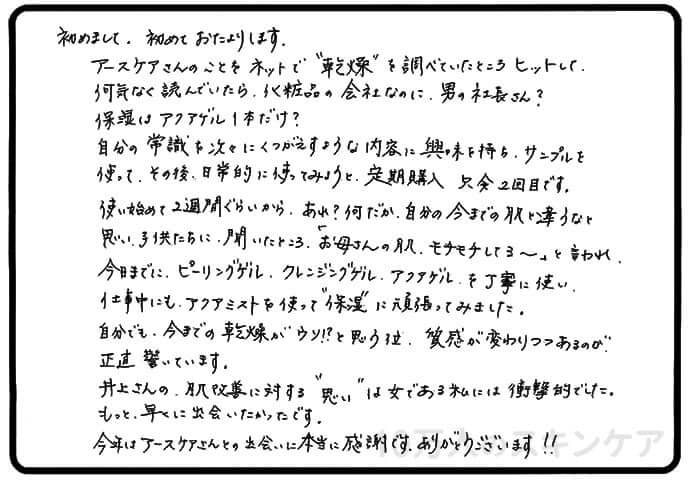 初めまして。初めておたよりします。
アースケアさんのことをネットで"乾燥"を調べていたところヒットして、
何気なく読んでいたら、化粧品の会社なのに、男の社長さん?
保湿はアクアゲル1本だけ?
自分の常識を次々にくつがえすような内容に興味を持ち、サンプルを
使って、その後、日常的に使ってみようと、定期購入 只今2回目です。
使い始めて2週間ぐらいから、あれ?何だか、自分の今までの肌と違うなと
思い、子供たちに、聞いたところ、「お母さんの肌、モチモチしてる〜」と言われ、
今日までに、ピーリングゲル、クレンジングゲル、アクアゲル、を丁寧に使い、
仕事中にも、アクアミストを使って"保湿"に頑張ってみました。
自分でも、今までの乾燥がウソ!?と思う位、質感が変わりつつあるのが、
正直 驚いています。
井上さんの、肌改善に対する"思い"は女である私には衝撃的でした。
もっと、早くに出会いたかったです。
今年はアースケアさんとの出会いに本当に感謝です。ありがとうございます!!
10万人のスキンケア